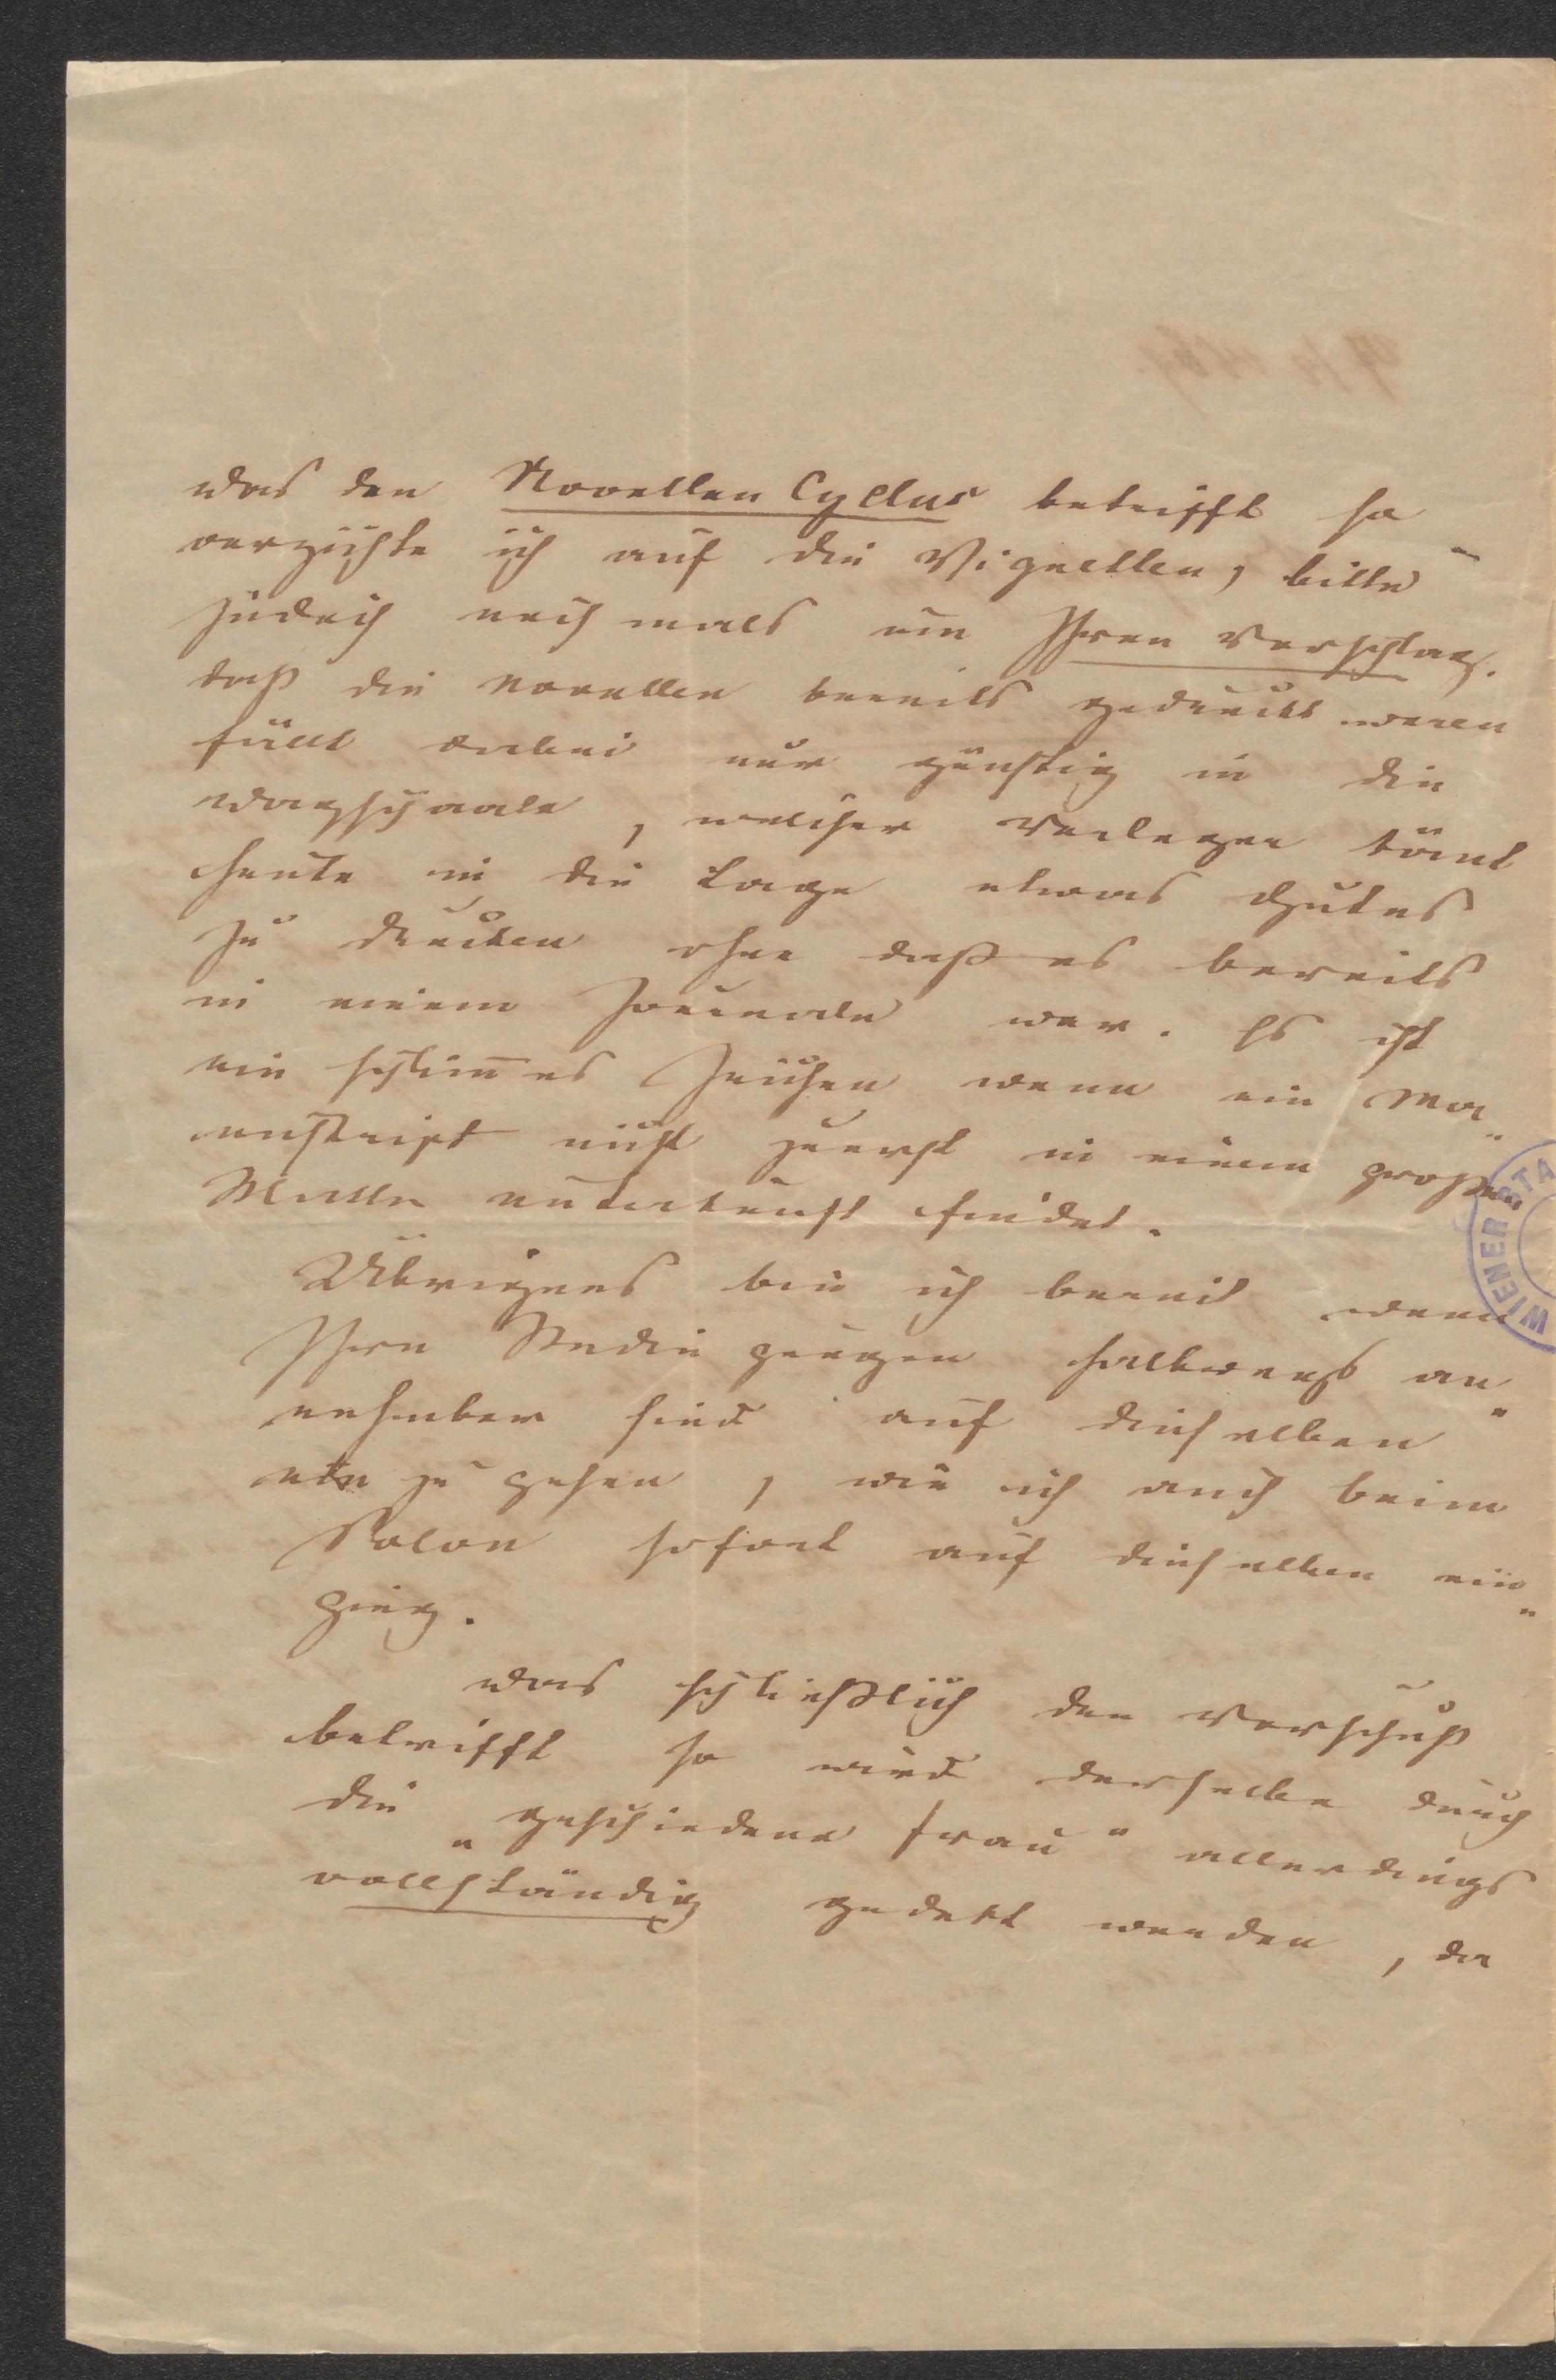 Was den Novellen Cyclus betrifft so
verzichte ich auf die Vignetten, bitte
jedoch noch mals um Ihren Vorschlag.
Daß die Novellen bereits gedruckt waren
fällt dabei nur günstig in die
Wagschaale, welcher Verleger kömt
heute in die Lage etwas Gutes
zu drucken ohne daß es bereits
in einem Journale war. Es ist
ein schlim̅es Zeichen wenn ein Ma„
nuskript nicht zuerst in einem großen
Blatte Unterkunft findet.
Übrigens bin ich bereit wenn
Ihre Bedingungen halbwegs an„
nehmbar sind auf dieselben
ein zu gehen, wie ich auch beim
Salon sofort auf dieselben ein„
ging.
Was schließlich den Vorschuß
betrifft so wird derselbe durch
die „geschiedene Frau" allerdings
vollständig gedekt werden, da
WIENER STA